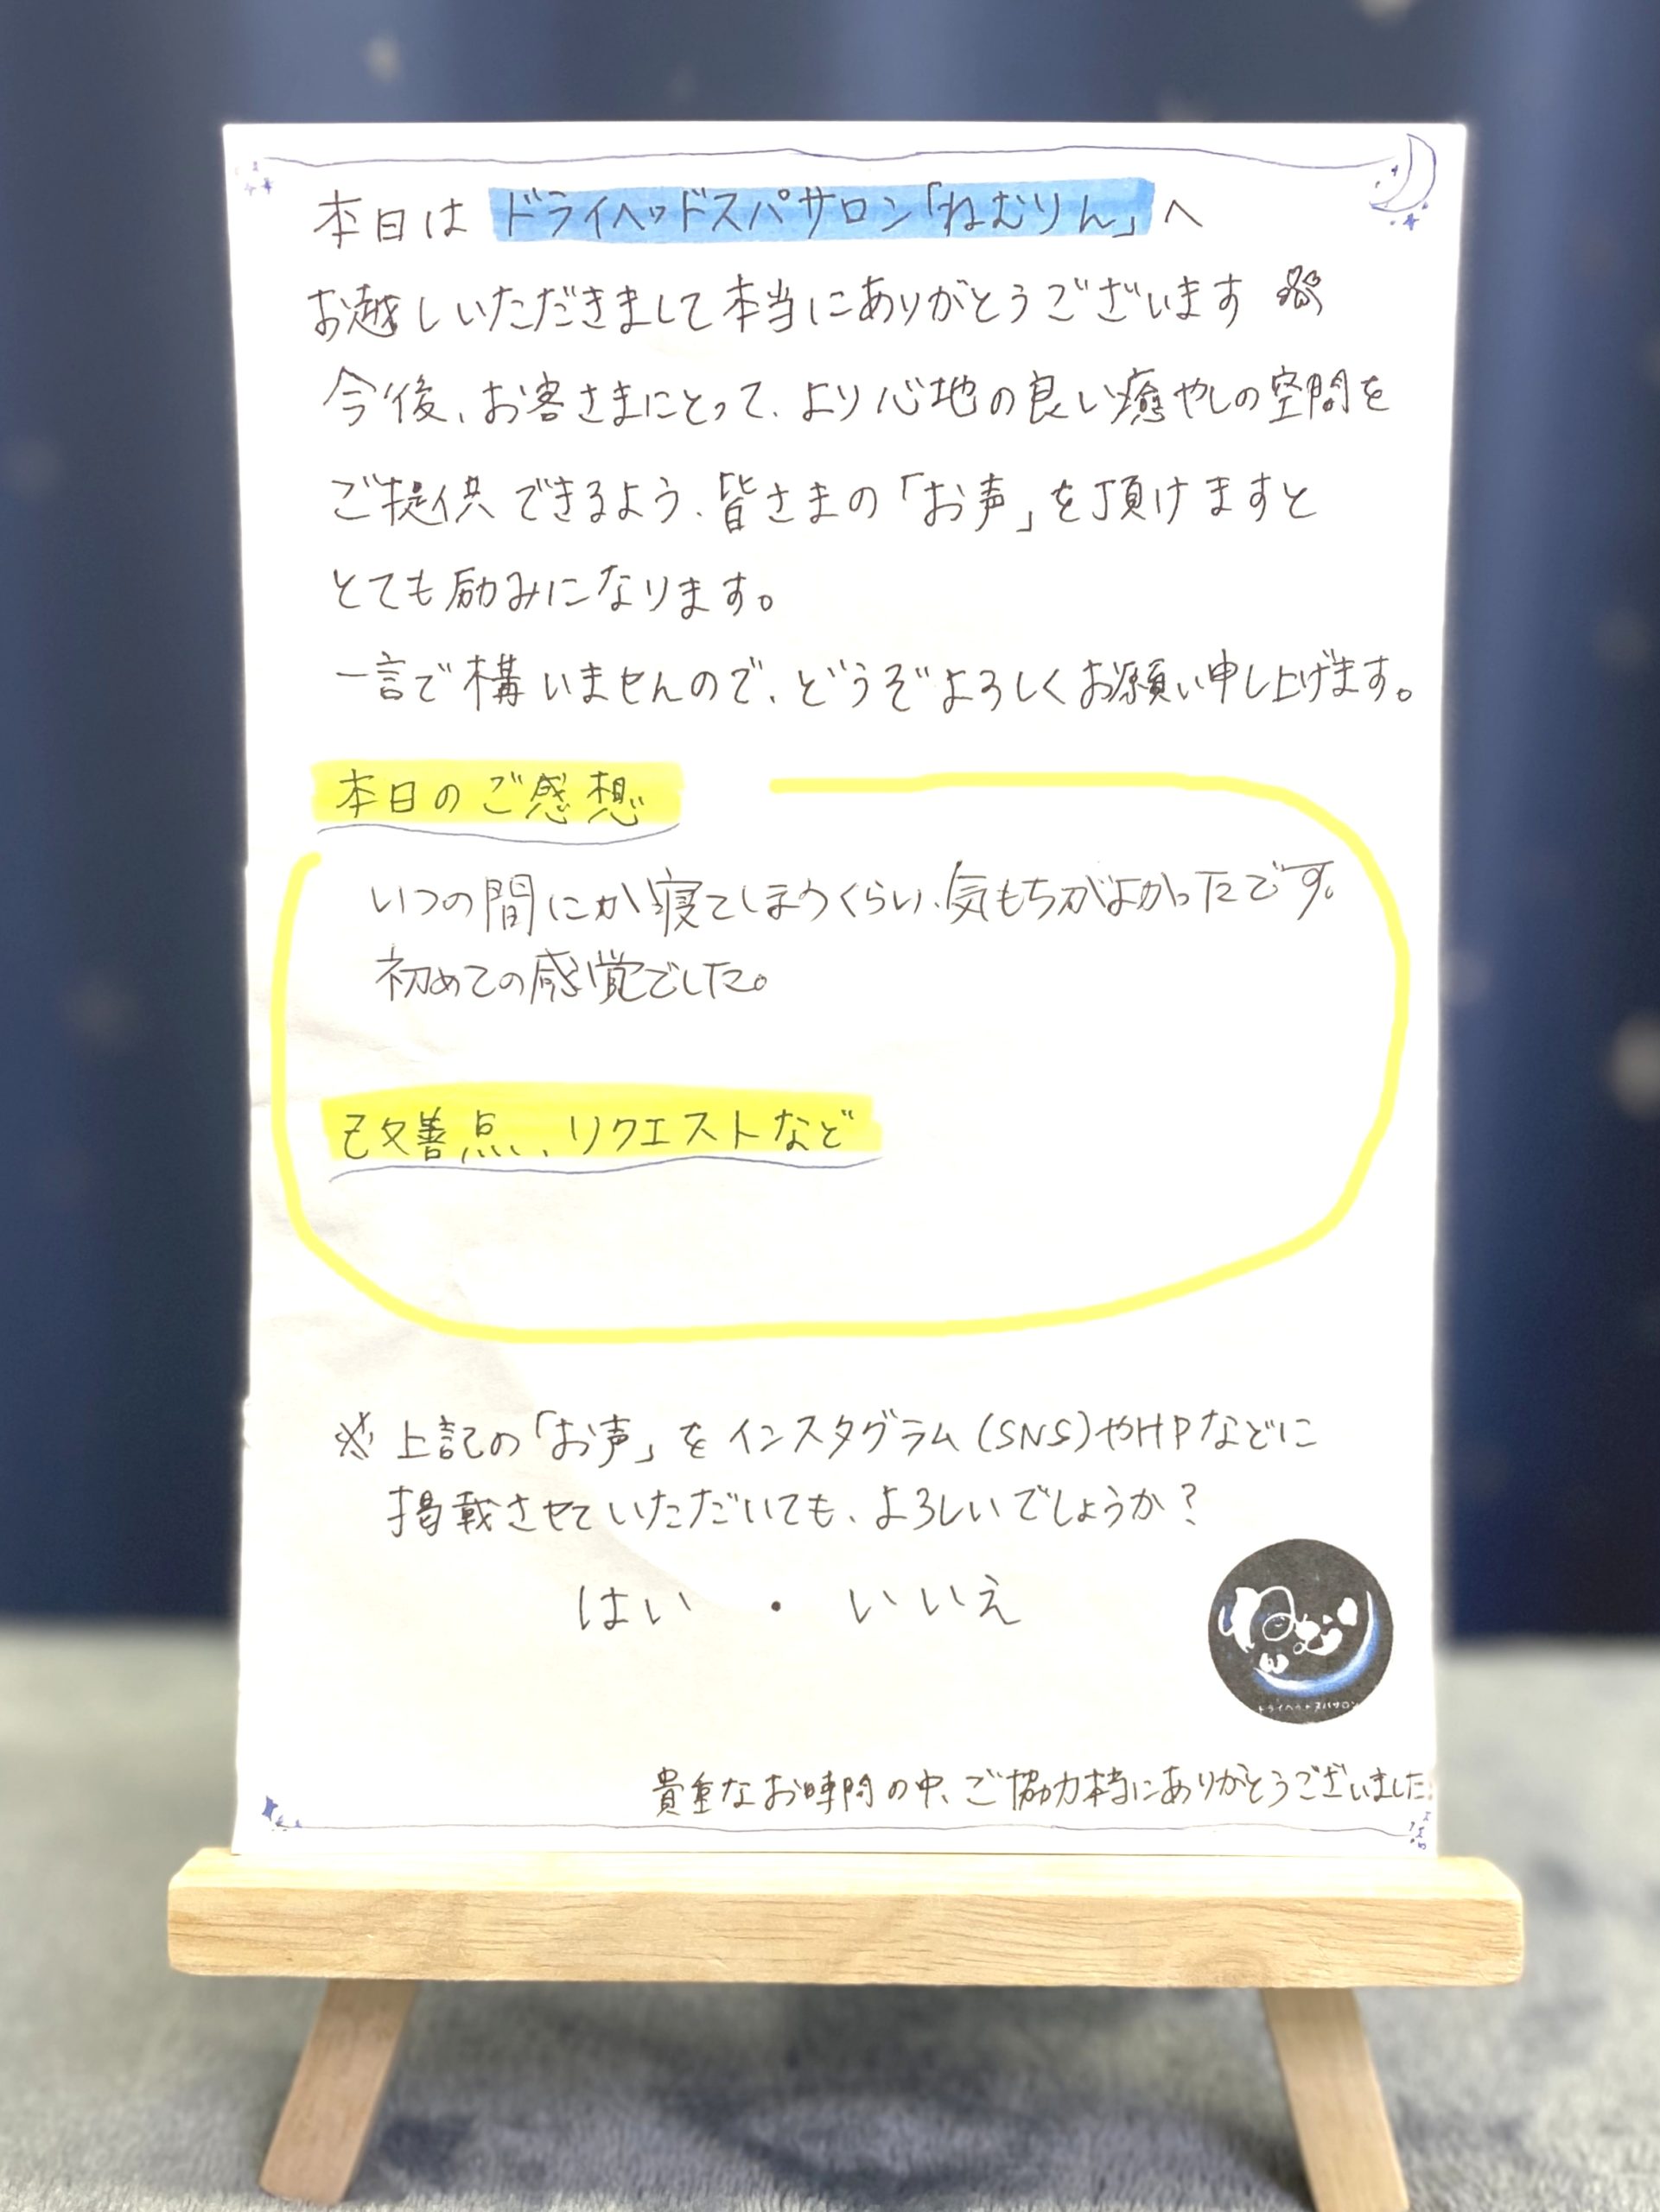 本日は ドライヘッドスパサロン「ねむりん」へ
お越しいただきまして本当にありがとうございます
今後、お客さまにとって、より心地の良い癒やしの空間を
ご提供できるよう、皆さまの「お声」を頂けますと
とても励みになります。
一言で構いませんので、どうぞよろしくお願い申し上げます。
本日のご感想
いつの間にか寝てしまうくらい、気もちがよかったです。
初めての感覚でした。
改善点、リクエストなど
※上記の「お声」をインスタグラム(SNS)やHPなどに
掲載させていただいても、よろしいでしょうか?
はい ・ いいえ
ドライヘッドスパサロン
貴重なお時間の中、ご協力本当にありがとうございました